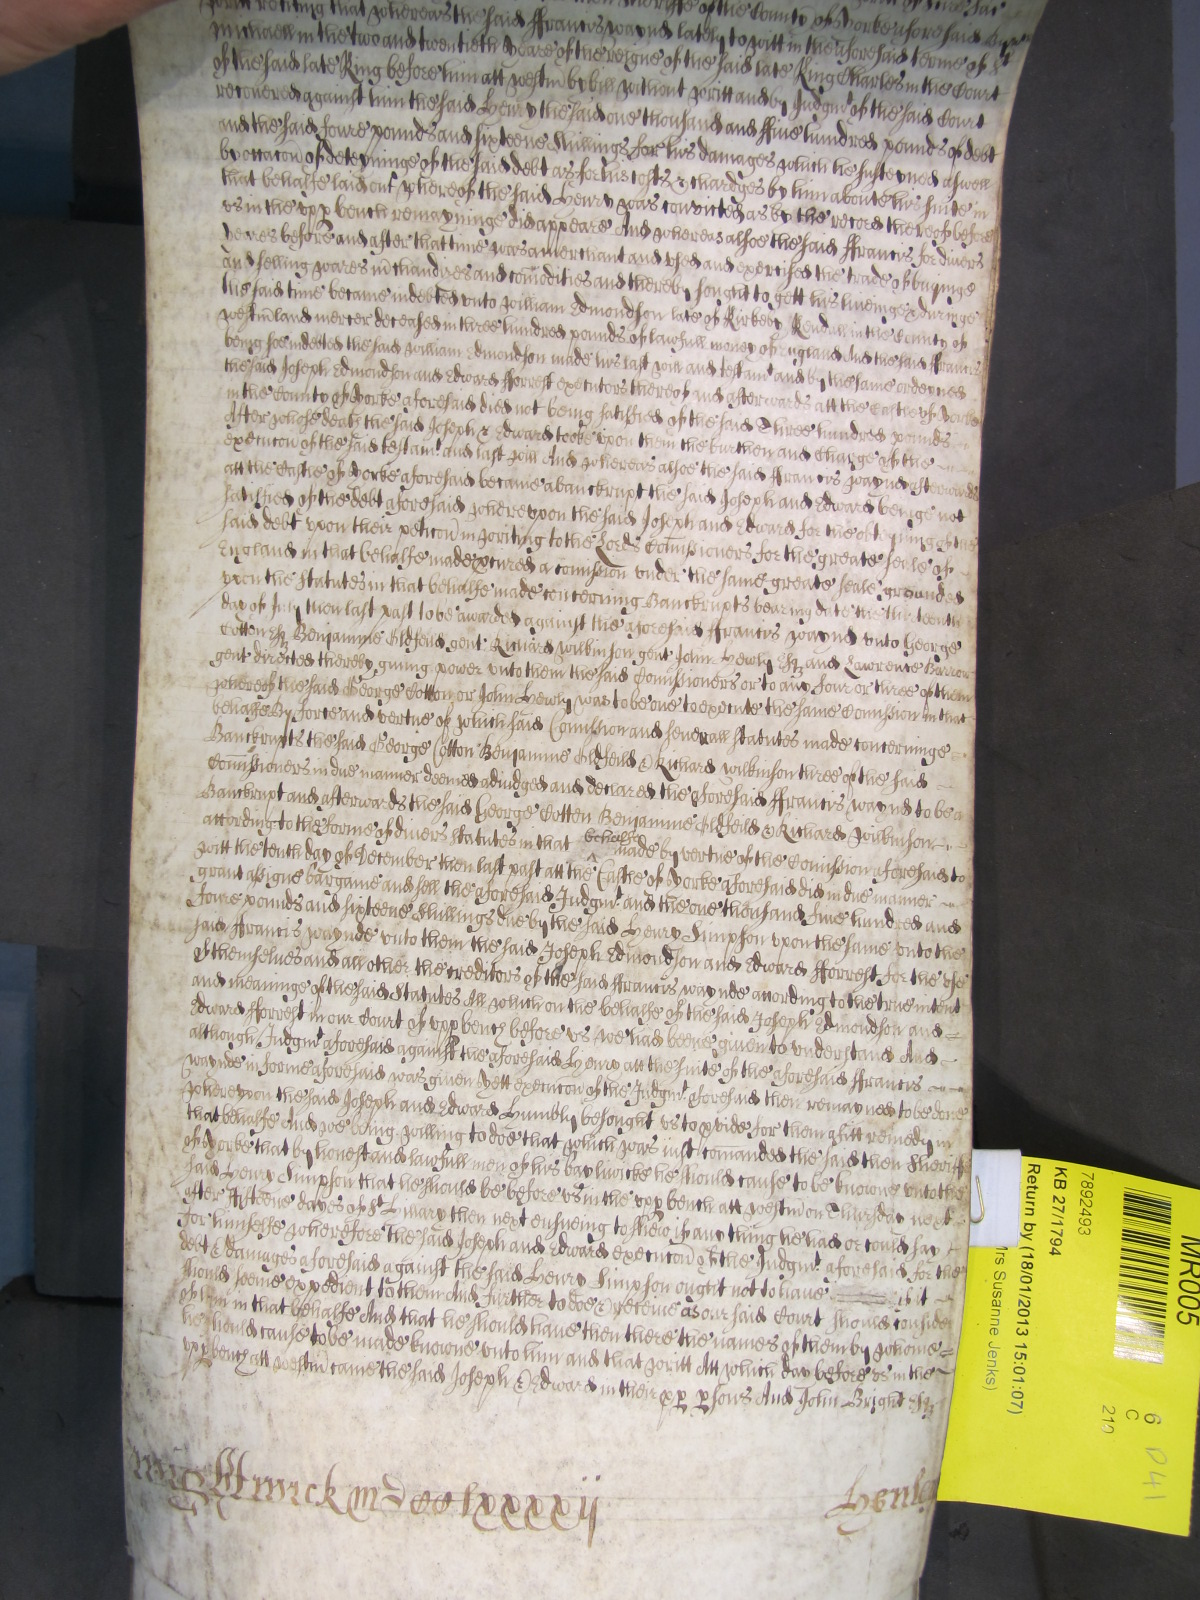 reciting that whereas the said ffrancis waynd lately to witt in the aforesaid terme of St
Michaell in the two and twentieth yeare of the reigne of the said late King Charles in the Court
of the said late King before him att westm̄ by bill without writt and by Judgmt of the said Court
recovered against him the said Henry the said one thousand and ffive hundred pounds of debt
and the said foure pounds and sixteene shillings for his damages which he susteyned aswell
by occacōn of deteyninge of the said debt as for his costs & chardges by him about his suite in
that behalfe laid out whereof the said Henry was convicted as by the record thereof before
us in the upp bench remayninge did appeare And whereas alsoe the said ffrancis for divers
yeares before and after that time was a merchant and used and exercised the trade of buyinge
and selling wares m̄chandizes and com̄odities and thereby sought to gett his liveinge & duringe
the said time became indebted unto william Edmondson late of Kirkeby Kendall in the County of
westm̄land mercer deceased in three hundred pounds of lawfull money of England And the said ffrancis
being soe indebted the said william Edmondson made his last will and testamt and by the same ordeyned
the said Joseph Edmondson and Edward fforrest executors thereof and afterwards att the Castle of Yorke
in the County of Yorke aforesaid died not being satisfied of the said Three hundred pounds
After whose death the said Joseph & Edward tooke upon them the burthen and Charge of the
execucōn of the said testamt and last will And whereas alsoe the said ffrancis waynd afterwards
att the Castle of Yorke aforesaid became a banckrupt the said Joseph and Edward beinge not
satisfied of the debt aforesaid whereupon the said Joseph and Edward for the obteyning of the
said debt upon their peticōn in writing to the Lords Com̄issioners for the greate seale of
England in that behalfe made p̄cured a com̄ission under the same greate seale grounded
upon the Statutes in that behalfe made concerning Banckrupts bearing date the thirteenth
day of July then last past to be awarded against the aforesaid ffrancis waynd unto George
Cotton Esqr Benjamyne Oldfeild gent Richard wilkinson gent John Hewly Esqr and Lawrence Barrow
gent directed thereby giving power unto them the said Com̄issioners or to any four or three of them
whereof the said George Cotton or John Hewly was to be one to execute the same Com̄ission in that
behalfe By force and vertue of which said Com̄ission and severall statutes made concerninge
Banckrupts the said George Cotton Benjamine Oldfeild & Richard wilkinson three of the said
Com̄issioners in due manner deemed adiudged and declared the aforesaid ffrancis waynd to be a
Banckrupt and afterwards the said George Cotten Benjamine Oldfeild & Richard wilkinson
according to the forme of divers statutes in that behalfe made by vertue of the Com̄ission aforesaid to
witt the tenth day of December then last past att the Castle of Yorke aforesaid did in due manner
grant assigne bargaine and sell the aforesaid Judgmt and the one thousand five hundred and
foure pounds and sixteene shillings due by the said Henry Simpson upon the same unto the
said ffrancis waynde unto them the said Joseph Edmondson and Edward fforrest for the use
of themselves and all other the creditors of the said ffrancis waynde according to the true intent
and meaninge of the said Statutes All which on the behalfe of the said Joseph Edmondson and
Edward fforrest in our Court of upp bench before us we had beene given to understand And
although Judgmt aforesaid against the aforesaid Henry att the suite of the aforesaid ffrancis
waynde in forme aforesaid was given Yett execucōn of the Judgmt aforesaid then remayned to be done
whereupon the said Joseph and Edward humbly besought us to p̄vide for them a fitt remedy in
that behalfe And we being willing to doe that which was iust com̄anded the said then Sheriffe
of Yorke that by honest and lawfull men of his bayliwicke he should cause to be knowne unto the
said Henry Simpson that he should be before us in the upp bench att westm̄ on Thursday next
after ffifteene dayes of St Hillary then next ensueing to shew if any thing he had or could say
for himselfe wherefore the said Joseph and Edward execucōn of the Judgmt aforesaid for the
debt & damages aforesaid against the said Henry Simpson ought not to have if it
should seeme expedient to them And further to doe & receive as our said Court should consider
of him in that behalfe And that he should have then there the names of them by whome
he should cause to be made knowne unto him and that writt Att which day before us in the
upp bench att westm̄ came the said Joseph & Edward in their p̄p p̄sons And John Bright Esqr
Henley
MR005
7892493
KB 27/1794
Return by (18/01/2013 15:01:07)
Mrs Susanne Jenks)
6
C
210
D41